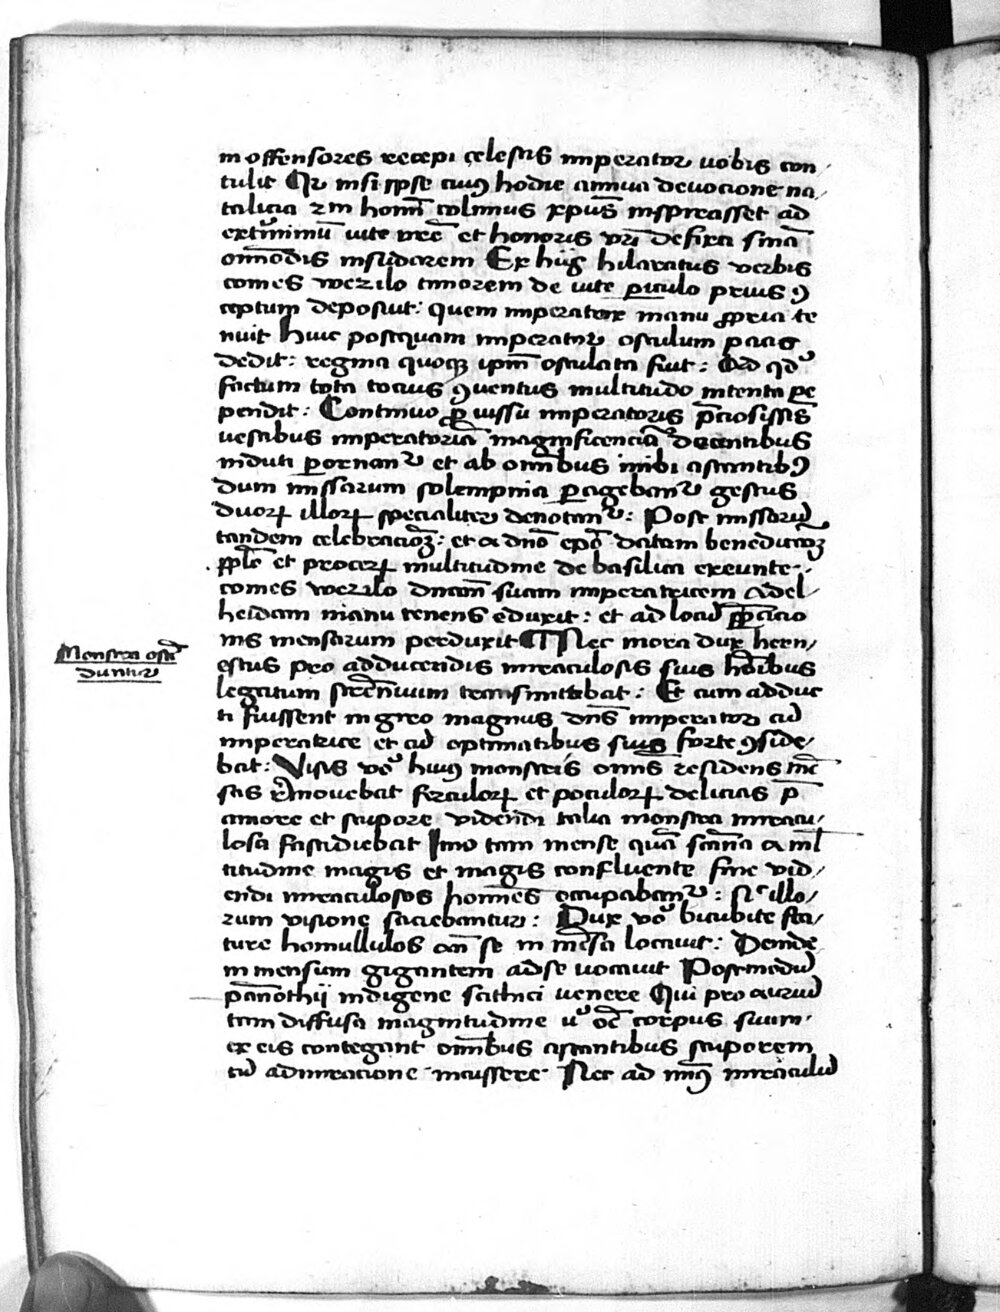 in offensores recepi celestis imperator vobis con
tulit Qr nisi ipse cuiꝰ hodie annua devocione na
talicia in colimus xpūs inspirasset ad
exterminiū vite vrē et honoris vrī defixa
omōdis insudarem Ex hijs hilaratus verbis
comes wezilo timorem de vite piculo prius ꝯ
ceptum deposuit: quem imperator manu ppria te
nuit Huic postquam imperator osculum pacis
dedit: regina quoqꝫ ipm osculata fuit: Qd qdē
factum tota tocius ꝯventus multitudo intenta pe
pendit: Continuo p iussū imperatoris pciosissis
vestibus imperatoriā magnificenciā decentibus
induti pornant' et ab omībus inibi astantibꝰ
dum missarum solempnia pagebant' gestus
duorꝝ illorꝝ specialiter denotant': Post missarū
tandem celebracioꝫ: et a dno epō datam benediccoꝫ
pple et procerꝝ multitudine de basilica exeunte
comes wezilo dnam suam imperatricem Adel
heidam manu tenens eduxit: et ad locū
nis mensarum perduxit Nec mora dux hern
estus pro adducendis miraculosis suis hoībus
legatum strennuum transmittebat: Et cum adduc
ti fuissent in magnus dns imperator cū
imperatrice et cū optimatibus suis forte ꝯside
bat: Visis vō huiꝰ monstris omīs residens
sas rmovebat ferculorꝝ et poculorꝝ delicias p
amore et stupore videndi talia monstra miracu
losa fastidiebat Imo tam mense quā a ml
titudine magis et magis confluente vid
endi miraculosos homīes occupabant': illo
rum visione saciebantur: Dux vō bicubite sta
ture homullulos an se in mēsa locavit: Deinde
in mensum gigantem ad se vocavit Postmodū
panothij indigene scithici venere Qui pro auriū
tam diffusa magnitudine corpus suum
ex eis contegant omībus astantibus stuporem
cū admiracione incussere Nec ad miraculū
Monstra oste
duntur